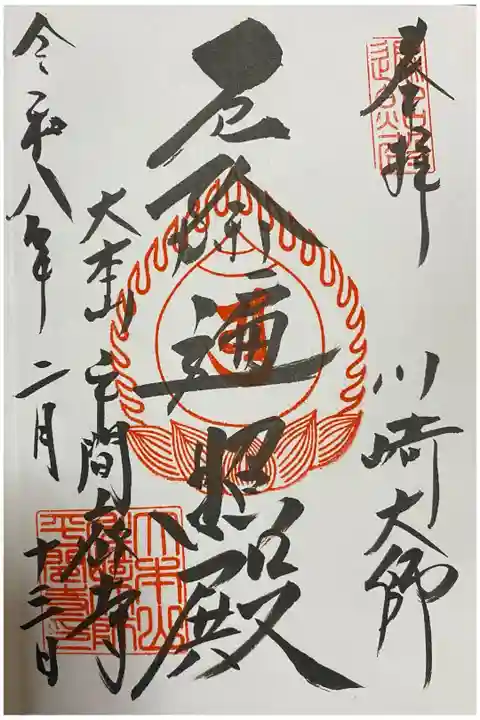 奉拝
川崎大師
厄除遍照殿
大本山
平間寺
令和八年二月十三日